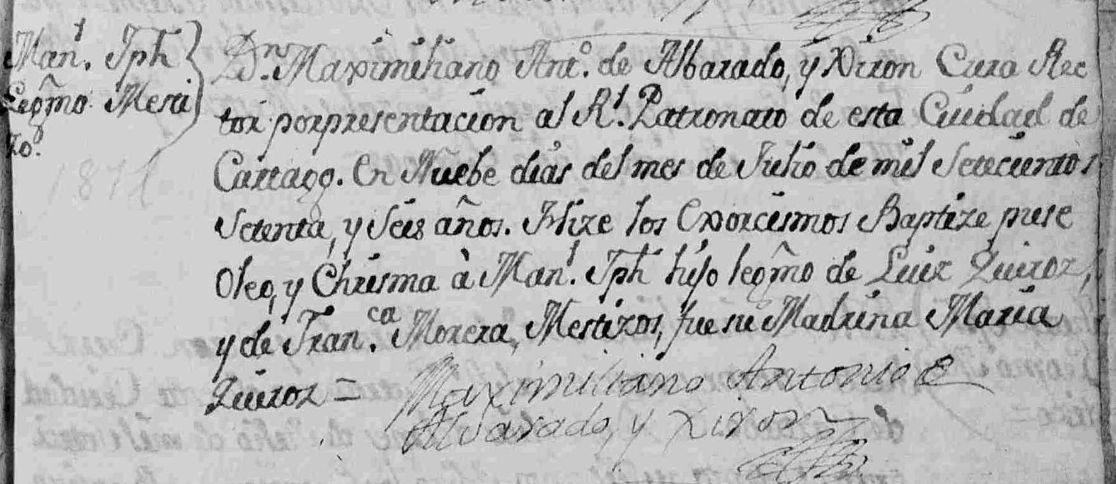 Man.l Jph
Legmo Mesti
zo.
Dn. Maximiliano Ant.o de Albarado, y Xiron Cura Rec
tor por presentacion al Rl. Patronato de esta Ciudad de
Cartago. En Nuebe dias del mes de Julio de mil Setecientos
Setenta, y Seis años. Hize los Exorcismos Baptize, puse
Oleo, y Chrisma à Man.l Jph hijo legmo de Luiz Quiroz,
y de Fran.ca Morera, Mestizos, fue su Madrina Maria
Quiroz =
Maximiliano Antonio
Alvarado, y Xiron